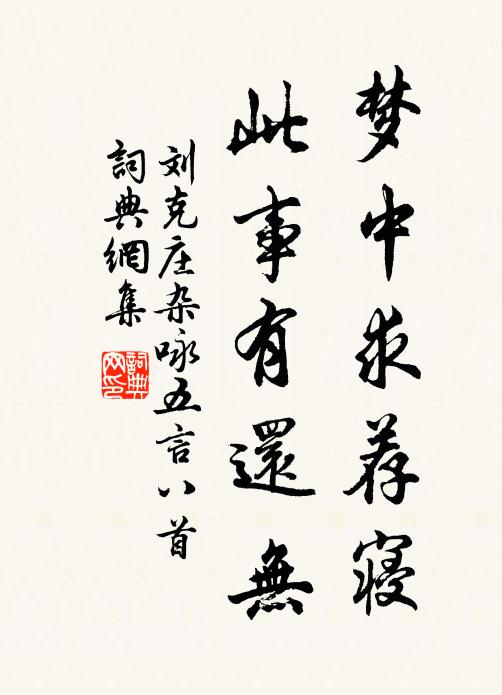 梦中求荐寝
此事有還無
刘克庄杂咏五言八首
詞典網集
詞典网印